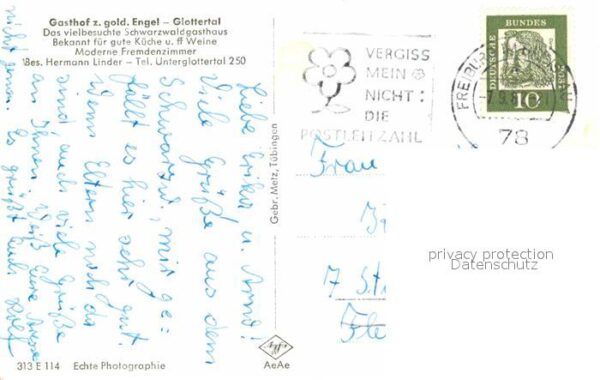 Gasthof z. gold. Engel – Glottertal
Das vielbesuchte Schwarzwaldgasthaus
Bekannt für gute Küche u. ff Weine
Moderne Fremdenzimmer
Bes. Hermann Linder – Tel. Unterglottertal 250
Liebe Erika u. Arno!
Viele Grüße aus dem
Schwarzwald, mir ge-
fällt es hier sehr gut.
Wenn Eltern noch da
sind auch viele Grüße
an Ihnen. Weiß eure Adresse
nicht genau. Es grüßt Euch Rolf
313 E 114 Echte Photographie
Gebr. Metz, Tübingen
AeAe
VERGISS
MEIN
NICHT:
DIE
POSTLEITZAHL
DEUTSCHE BUNDES
10
FREIBURG
78
Frau
7 St
privacy protection
Datenschutz